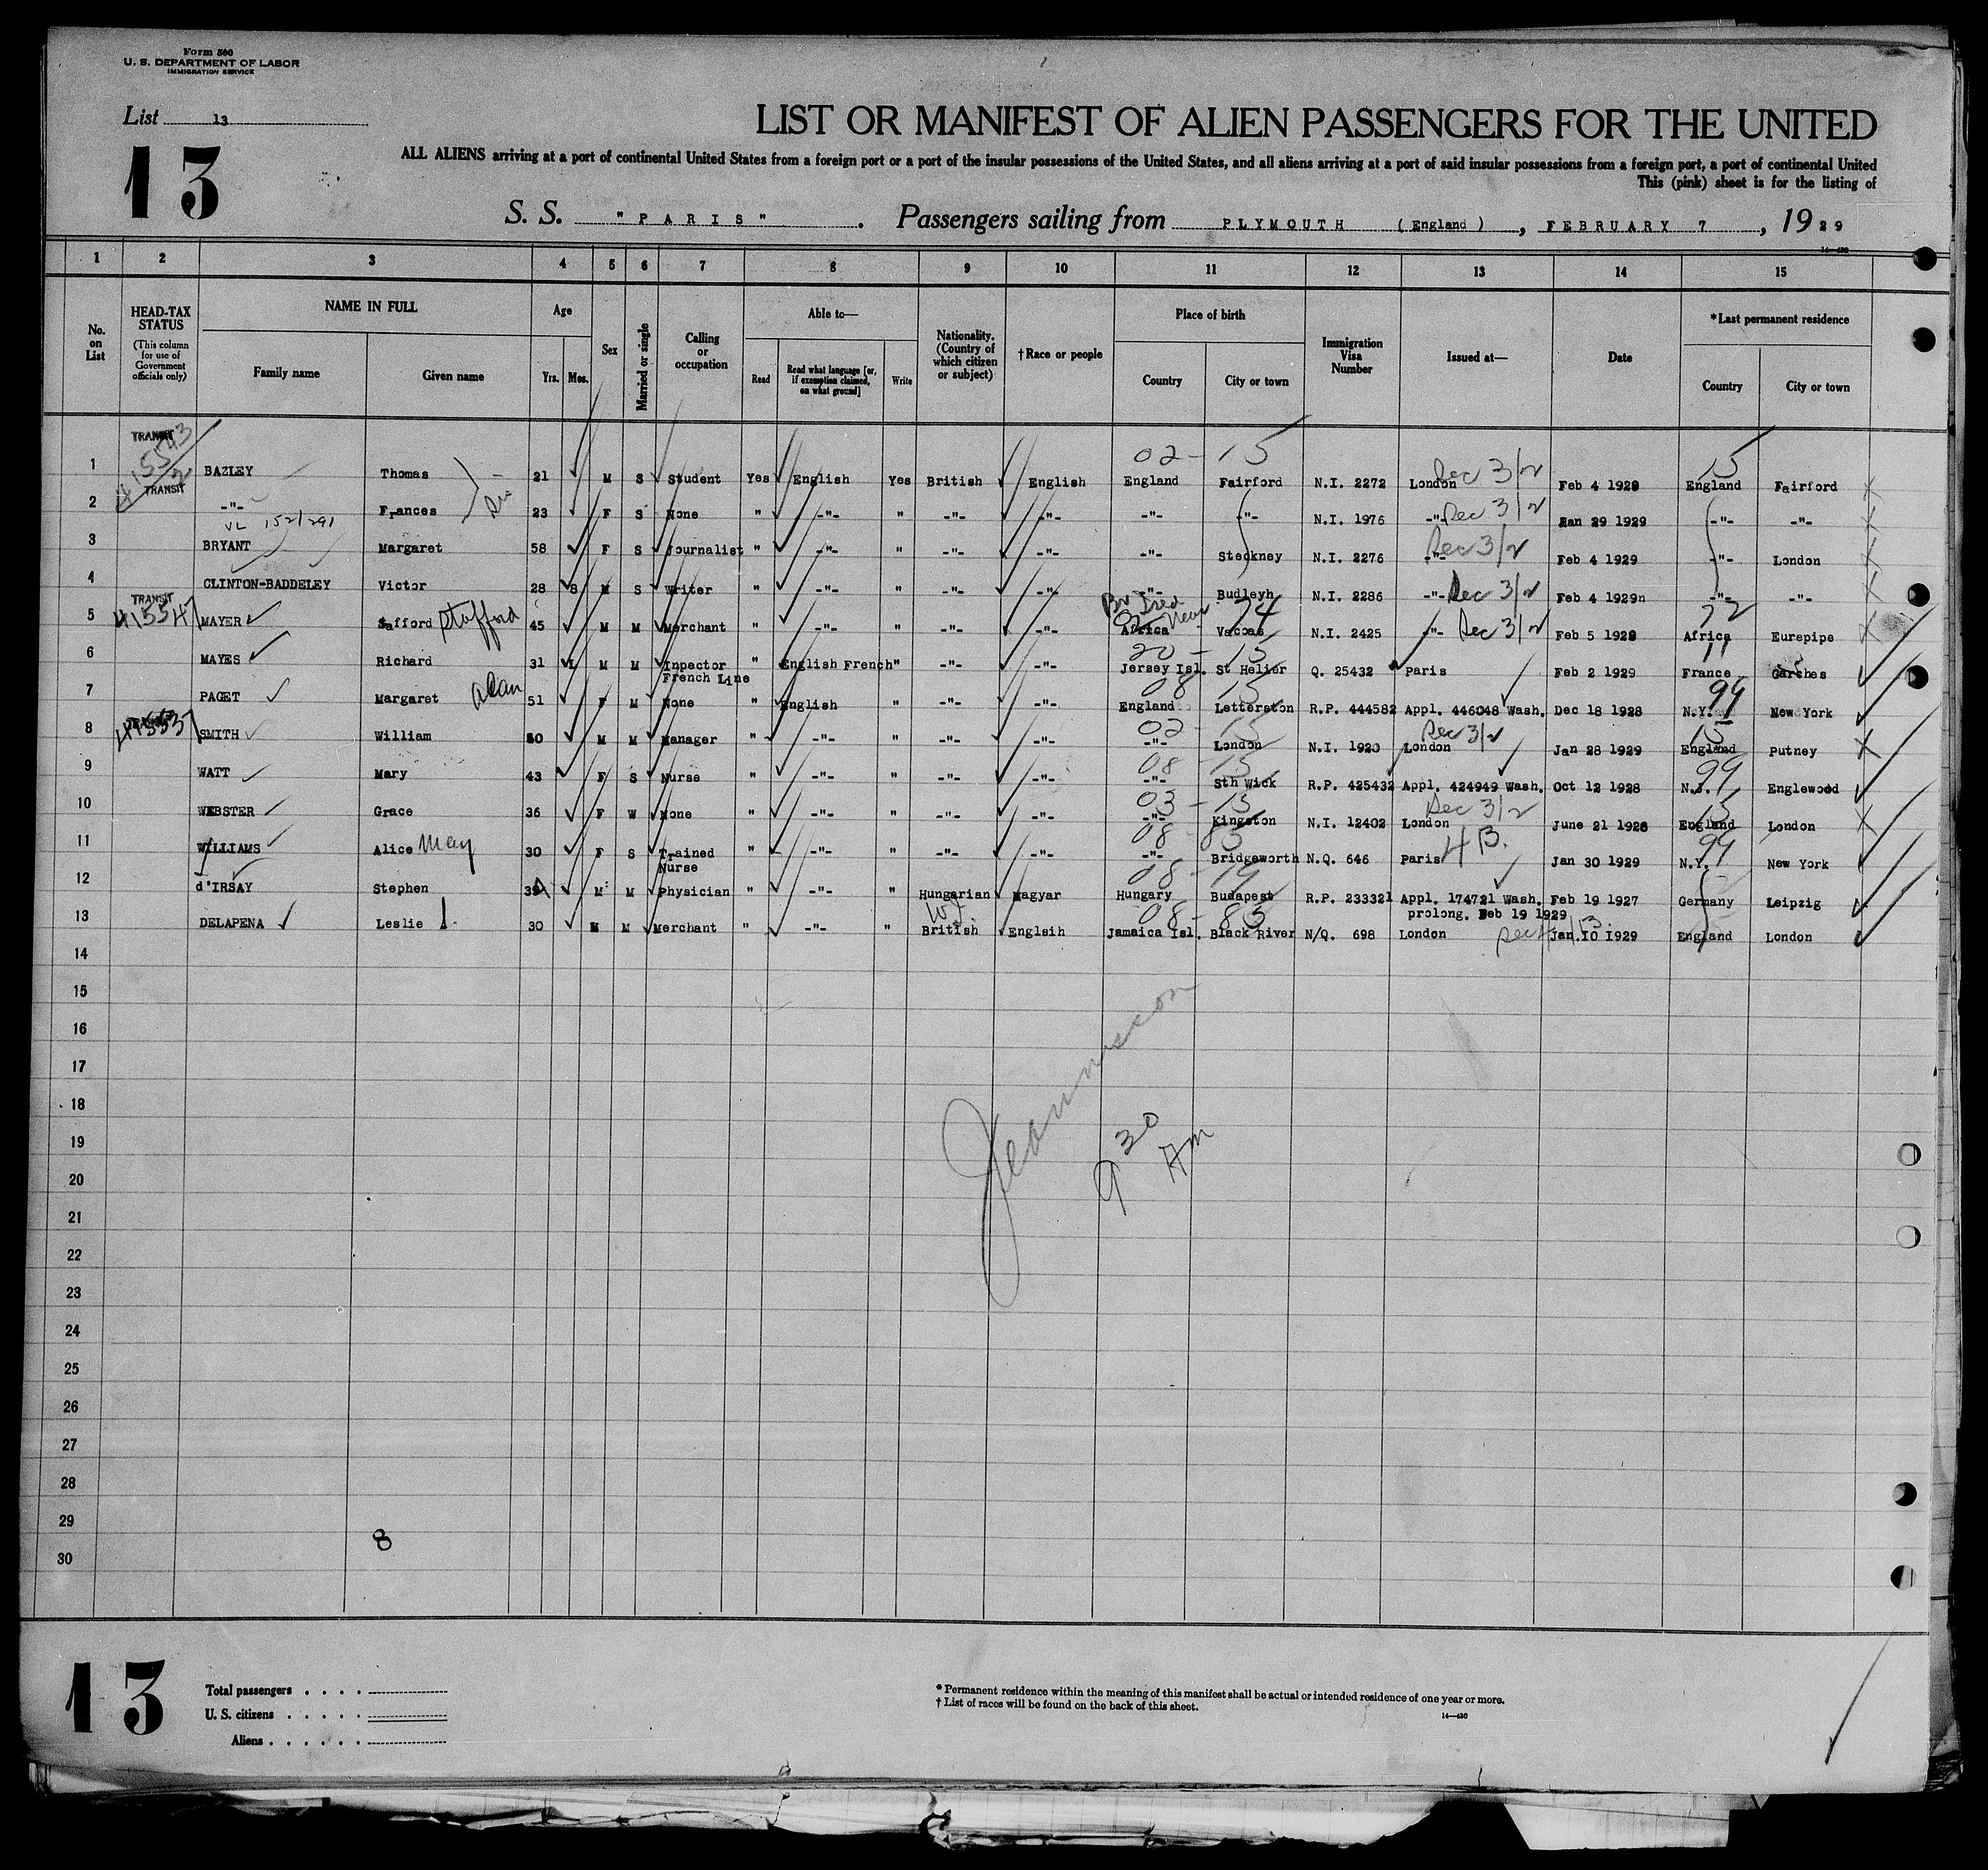 Form 500
U. S. DEPARTMENT OF LABOR
IMMIGRATION SERVICE
List 13
13
LIST OR MANIFEST OF ALIEN PASSENGERS FOR THE UNITED
ALL ALIENS arriving at a port of continental United States from a foreign port or a port of the insular possessions of the United States, and all aliens arriving at a port of said insular possessions from a foreign port, a port of continental United
This (pink) sheet is for the listing of
S. S. "PARIS". Passengers sailing from PLYMOUTH (England), FEBRUARY 7, 1929
1 2 3 4 5 6 7 8 9 10 11 12 13 14 15
No. on List
HEAD-TAX STATUS (This column for use of Government officials only)
NAME IN FULL Family name Given name
Age Yrs. Mos.
Sex
Married or single
Calling or occupation
Able to— Read Read what language [or, if exemption claimed, on what ground] Write
Nationality. (Country of which citizen or subject)
†Race or people
Place of birth Country City or town
Immigration Visa Number
Issued at—
Date
*Last permanent residence Country City or town
TRANSIT 02 - 15 Sec 3/2 15
1 BAZLEY Thomas 21 M S Student Yes English Yes British English England Fairford N.I. 2272 London Feb 4 1929 England Fairford
TRANSIT Sec 3/2
2 -"- Frances 23 F S None " -"- " -"- -"- -"- -"- N.I. 1976 -"- Jan 29 1929 -"- -"-
VL 152/291 Sec 3/2
3 BRYANT Margaret 58 F S Journalist " -"- " -"- -"- -"- Steckney N.I. 2276 -"- Feb 4 1929 -"- London
4 CLINTON-BADDELEY Victor 28 8 M S Writer " -"- " -"- -"- -"- Budleyh N.I. 2286 -"- Sec 3/2 Feb 4 1929n -"- -"-
TRANSIT 415547 74 72
5 MAYER Safford Stafford 45 M M Merchant " -"- " -"- -"- Africa Vacoas N.I. 2425 -"- Sec 3/2 Feb 5 1929 Africa Eurepipe
20 - 15 11
6 MAYES Richard 31 1 M M Inpector French Line " English French " -"- -"- Jersey Isl. St Helier Q. 25432 Paris Feb 2 1929 France Garches
08 15 99
7 PAGET Margaret 51 F M None " English " -"- -"- England Letterston R.P. 444582 Appl. 446048 Wash. Dec 18 1928 N.Y. New York
02 - 15 Sec 3/2 15
8 SMITH William 50 M M Manager " -"- " -"- -"- -"- London N.I. 1920 London Jan 28 1929 England Putney
08 - 15 99
9 WATT Mary 43 F S Nurse " -"- " -"- -"- -"- Sth Wick R.P. 425432 Appl. 424949 Wash. Oct 12 1928 N.J. Englewood
03 - 15 Sec 3/2 15
10 WEBSTER Grace 36 F W None " -"- " -"- -"- -"- Kingston N.I. 12402 London June 21 1928 England London
08 - 83 4 B. 99
11 WILLIAMS Alice May 30 F S Trained Nurse " -"- " -"- -"- -"- Bridgeworth N.Q. 646 Paris Jan 30 1929 N.Y. New York
08 - 19
12 d'IRSAY Stephen 39 M M Physician " -"- " Hungarian Magyar Hungary Budapest R.P. 233321 Appl. 174721 Wash. Feb 19 1927 Germany Leipzig
prolong. Feb 19 1929
08 - 83
13 DELAPENA Leslie 30 M M Merchant " -"- " British Englsih Jamaica Isl. Black River N/Q. 698 London Jan.10 1929 England London
14
15
16
17
18
19
20
21
22
23
24
25
26
27
28
29
30
9 30 Am
8
13
Total passengers
U. S. citizens
Aliens
* Permanent residence within the meaning of this manifest shall be actual or intended residence of one year or more.
† List of races will be found on the back of this sheet.
14—430